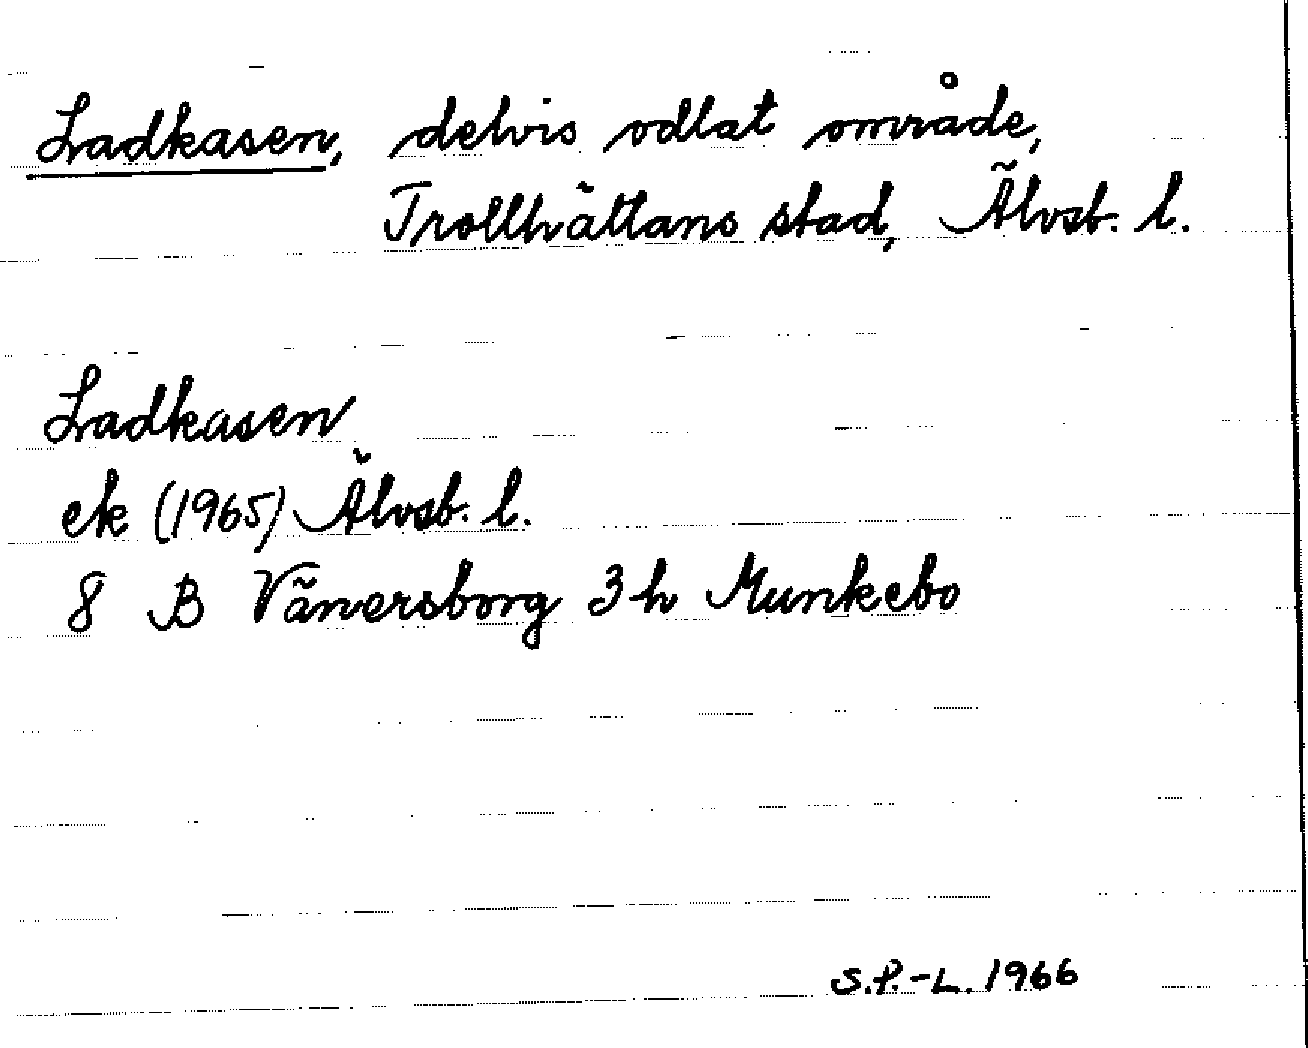 Ladkasen, delvis odlat område,
Trollhättans stad, Älvsb. l.
Ladkasen
ek (1965) Älvsb. l.
8 B Vänersborg 3 h Munkebo
S.P.-L. 1966